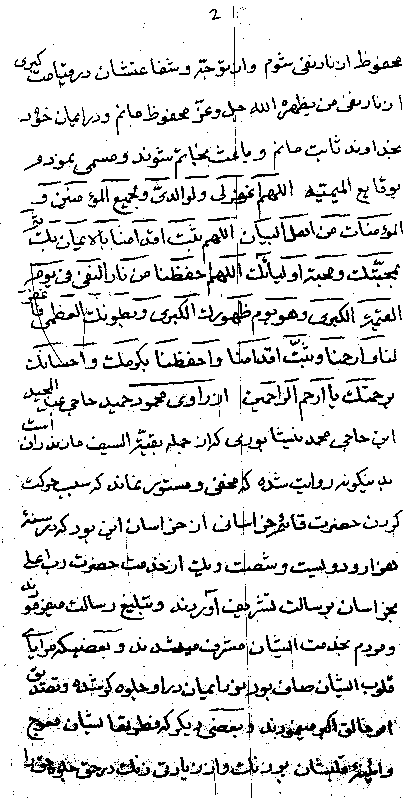 2
محفوظ از نار نفی شوم و از توجّه و شفاعتشان در قیامت کبری
از نار نفی من یظهره الله جل و عزّ محفوظ مانم و در ایمان خود
بخداوند ثابت مانم و باعث نجاتم شوند و مسمی نمودم
بوقایع المیمیه اللهم اغفر لی و لوالدیّ و لجمیع المؤمنین و
المؤمنات من اهل البیان اللهم ثبّت اقدامنا بالایمان بک
بمحبّتک و محبة اولیائک اللهم احفظنا من نار النفی فی یوم
القیمة الکبری و هو یوم ظهورک الکبری و بطونک العظمی فاغفر
لنا و ارحمنا و ثبّت اقدامنا و احفظنا بکرمک و احسانک
برحمتک یا ارحم الراحمین از راوی محمود حمید حاجی عبد المجید
ابن حاجی محمد نیشابوری که از جمله بقیة السیف مازندران است
بدینگونه روایت شده که مخفی و مستور نماند که سبب حرکت
کردن حضرت قائم خراسانی از خراسان این بود که در سنهٔ
هزار و دویست و شصت و یک از خدمت حضرت رب اعلی
بخراسان برسالت تشریف آوردند و تبلیغ رسالت میفرمودند
و مردم بخدمت ایشان مشرف میشدند و بعضیکه مرایای
قلوب ایشان صافی بود نور ایمان در او جلوه گر شده و تصدیق
امر خالق اکبر مینمودند و بعضی دیگر که فطریة ایشان معوج
و قلبشان بود زنک و از زیارتی زنک در حق